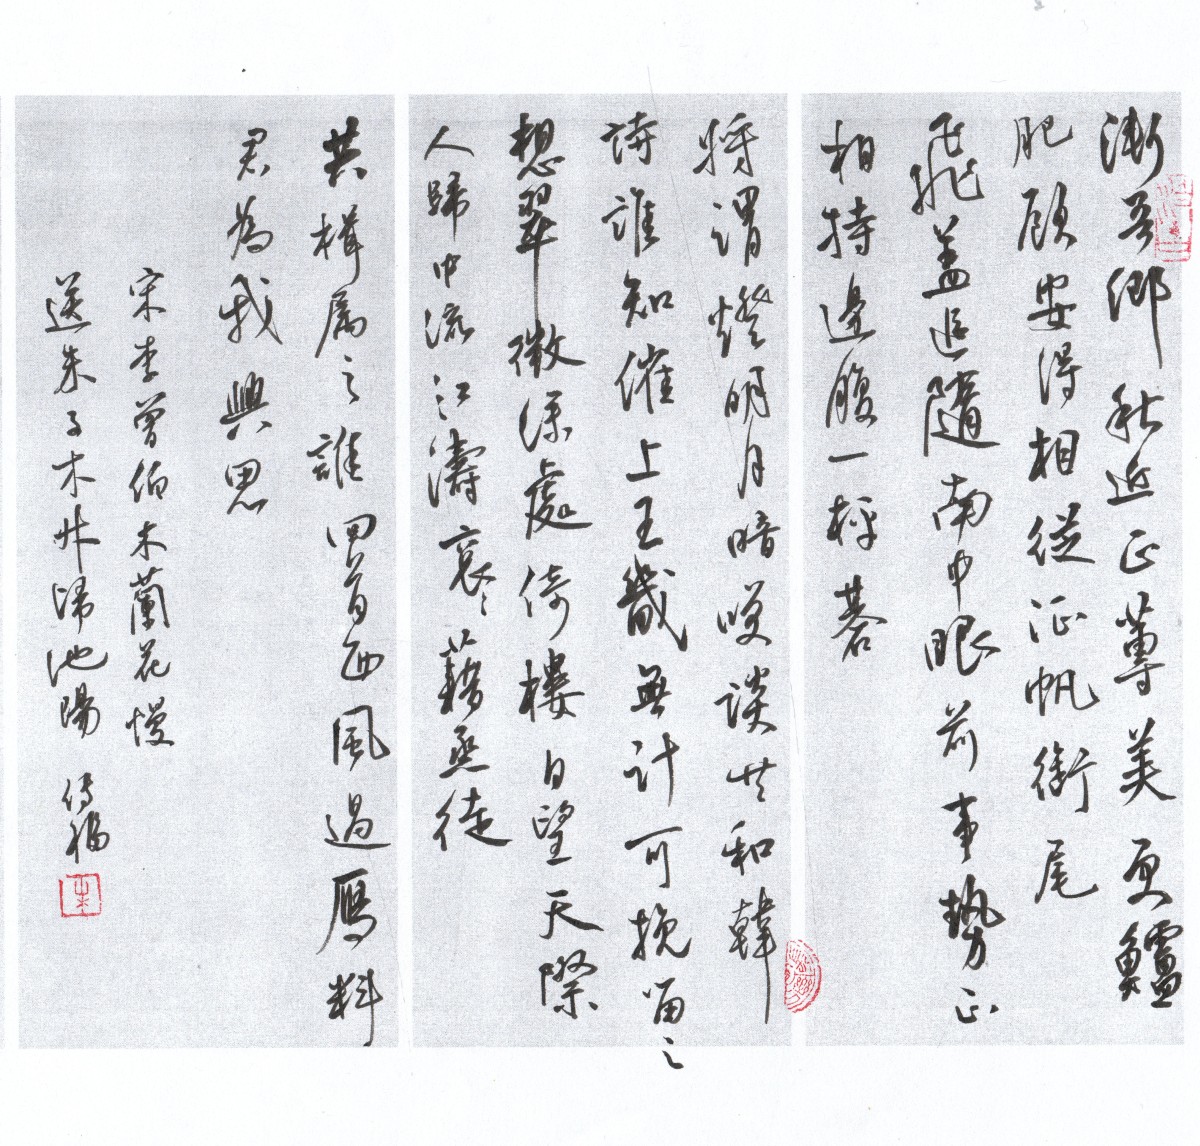 漸吾鄉秋近正蓴美更鱸
肥顧安得相從征帆銜尾
飛蓋追隨南中眼前事勢正
相持邊腹一枰碁
將謂燈明月暗咲談共和韓
詩誰知催上王畿無計可挽留之
想翠微深處倚樓日望天際
人歸中流江濤衮々藉烝徒
共楫屬之誰回首西風過雁料
君為我興思
宋李曾伯木蘭花慢
送朱子木叔歸池陽 傳福